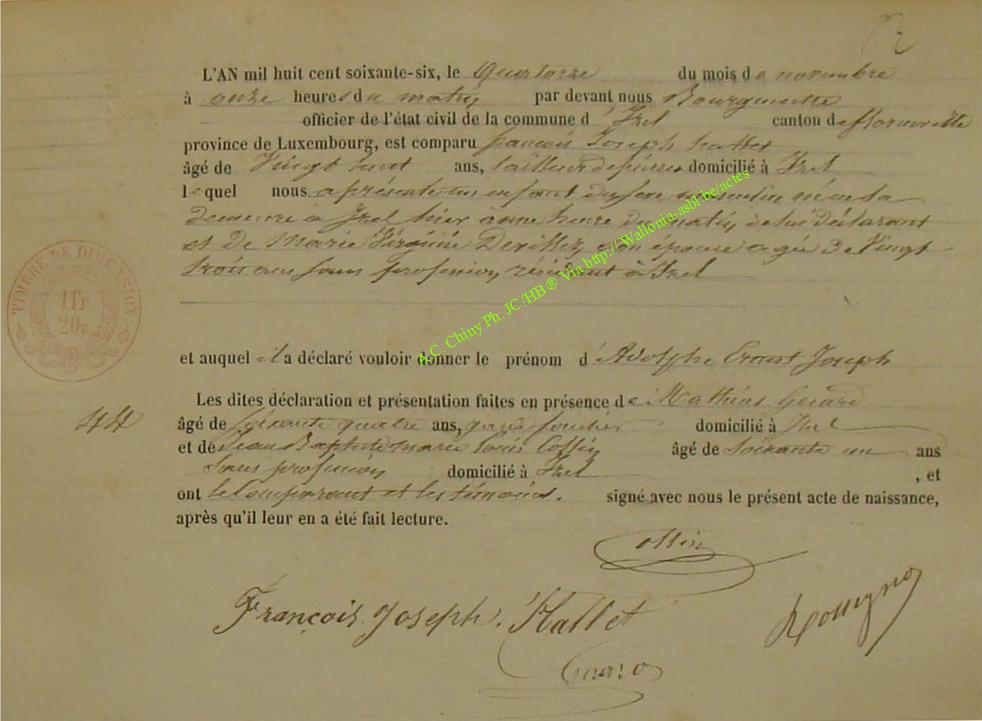 L'AN mil huit cent soixante-six, le Quatorze du mois de novembre
à onze heures du matin par devant nous Bourgmestre
officier de l'état civil de la commune d'Izel canton de florenville
province de Luxembourg, est comparu françois Joseph hallet
âgé de Vingt huit ans, tailleur de pierres domicilié à Izel
lequel nous a présenté un enfant du sexe masculin né en sa
demeure à Izel hier à une heure du matin, de lui déclarant
et de Marie Virginie son épouse agée de Vingt
trois ans sans profession, résidant à Izel
TIMBRE DE DIMENSION
1fr
20c
et auquel il a déclaré vouloir donner le prénom d'Adolphe Ernest Joseph
Les dites déclaration et présentation faites en présence de Mathias Gérard
44
âgé de soixante quatre ans, garde domicilié à Izel
et de Jean Baptiste marie louis Collin âgé de Soixante un ans
Sans profession domicilié à Izel , et
ont le Comparant et les témoins. signé avec nous le présent acte de naissance,
après qu'il leur en a été fait lecture.
Collin
François Joseph Hallet
A.C. Chiny Ph. JC/HB® Via http://Wallonia-asbl.be/actes